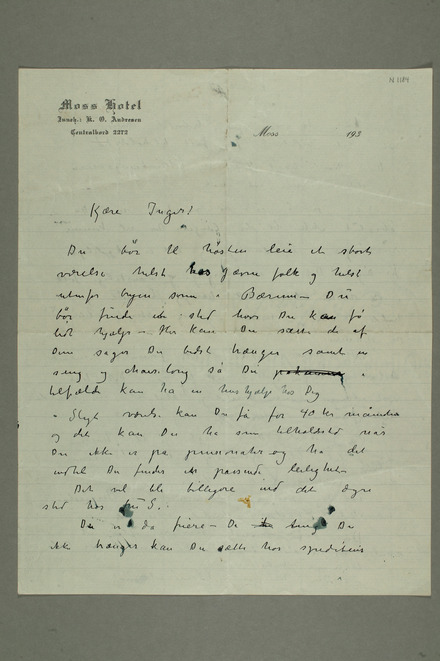 N 1184
Moss Hotel
Inneh.: K. O. Andresen
Centralbord 2272
Moss 193
Kjære Inger!
Du bör til hösten leie et stort
værelse helst hos Gjævne folk og helst
utenfor byen som i Bærum – Du
bör finde et sted hvor Du kan få
lidt hjælp – Her kan Du sætte de af
Dine sager Du bedst trænger samt en
seng og chaiselong så Du i
tilfælde kan ha en hushjælp hos Dig
Sligt værelse kan Du få for 40 kr måneden
og det kan Du ha som tilholdsted når
Du ikke er på pensionater og ha det
indtil Du finder et passende leilighet –
Det vil bli billigere end det dyre
sted hos fru S. –
Du er da friere – De ting Du
ikke trænger kan Du sætte hos speditöris